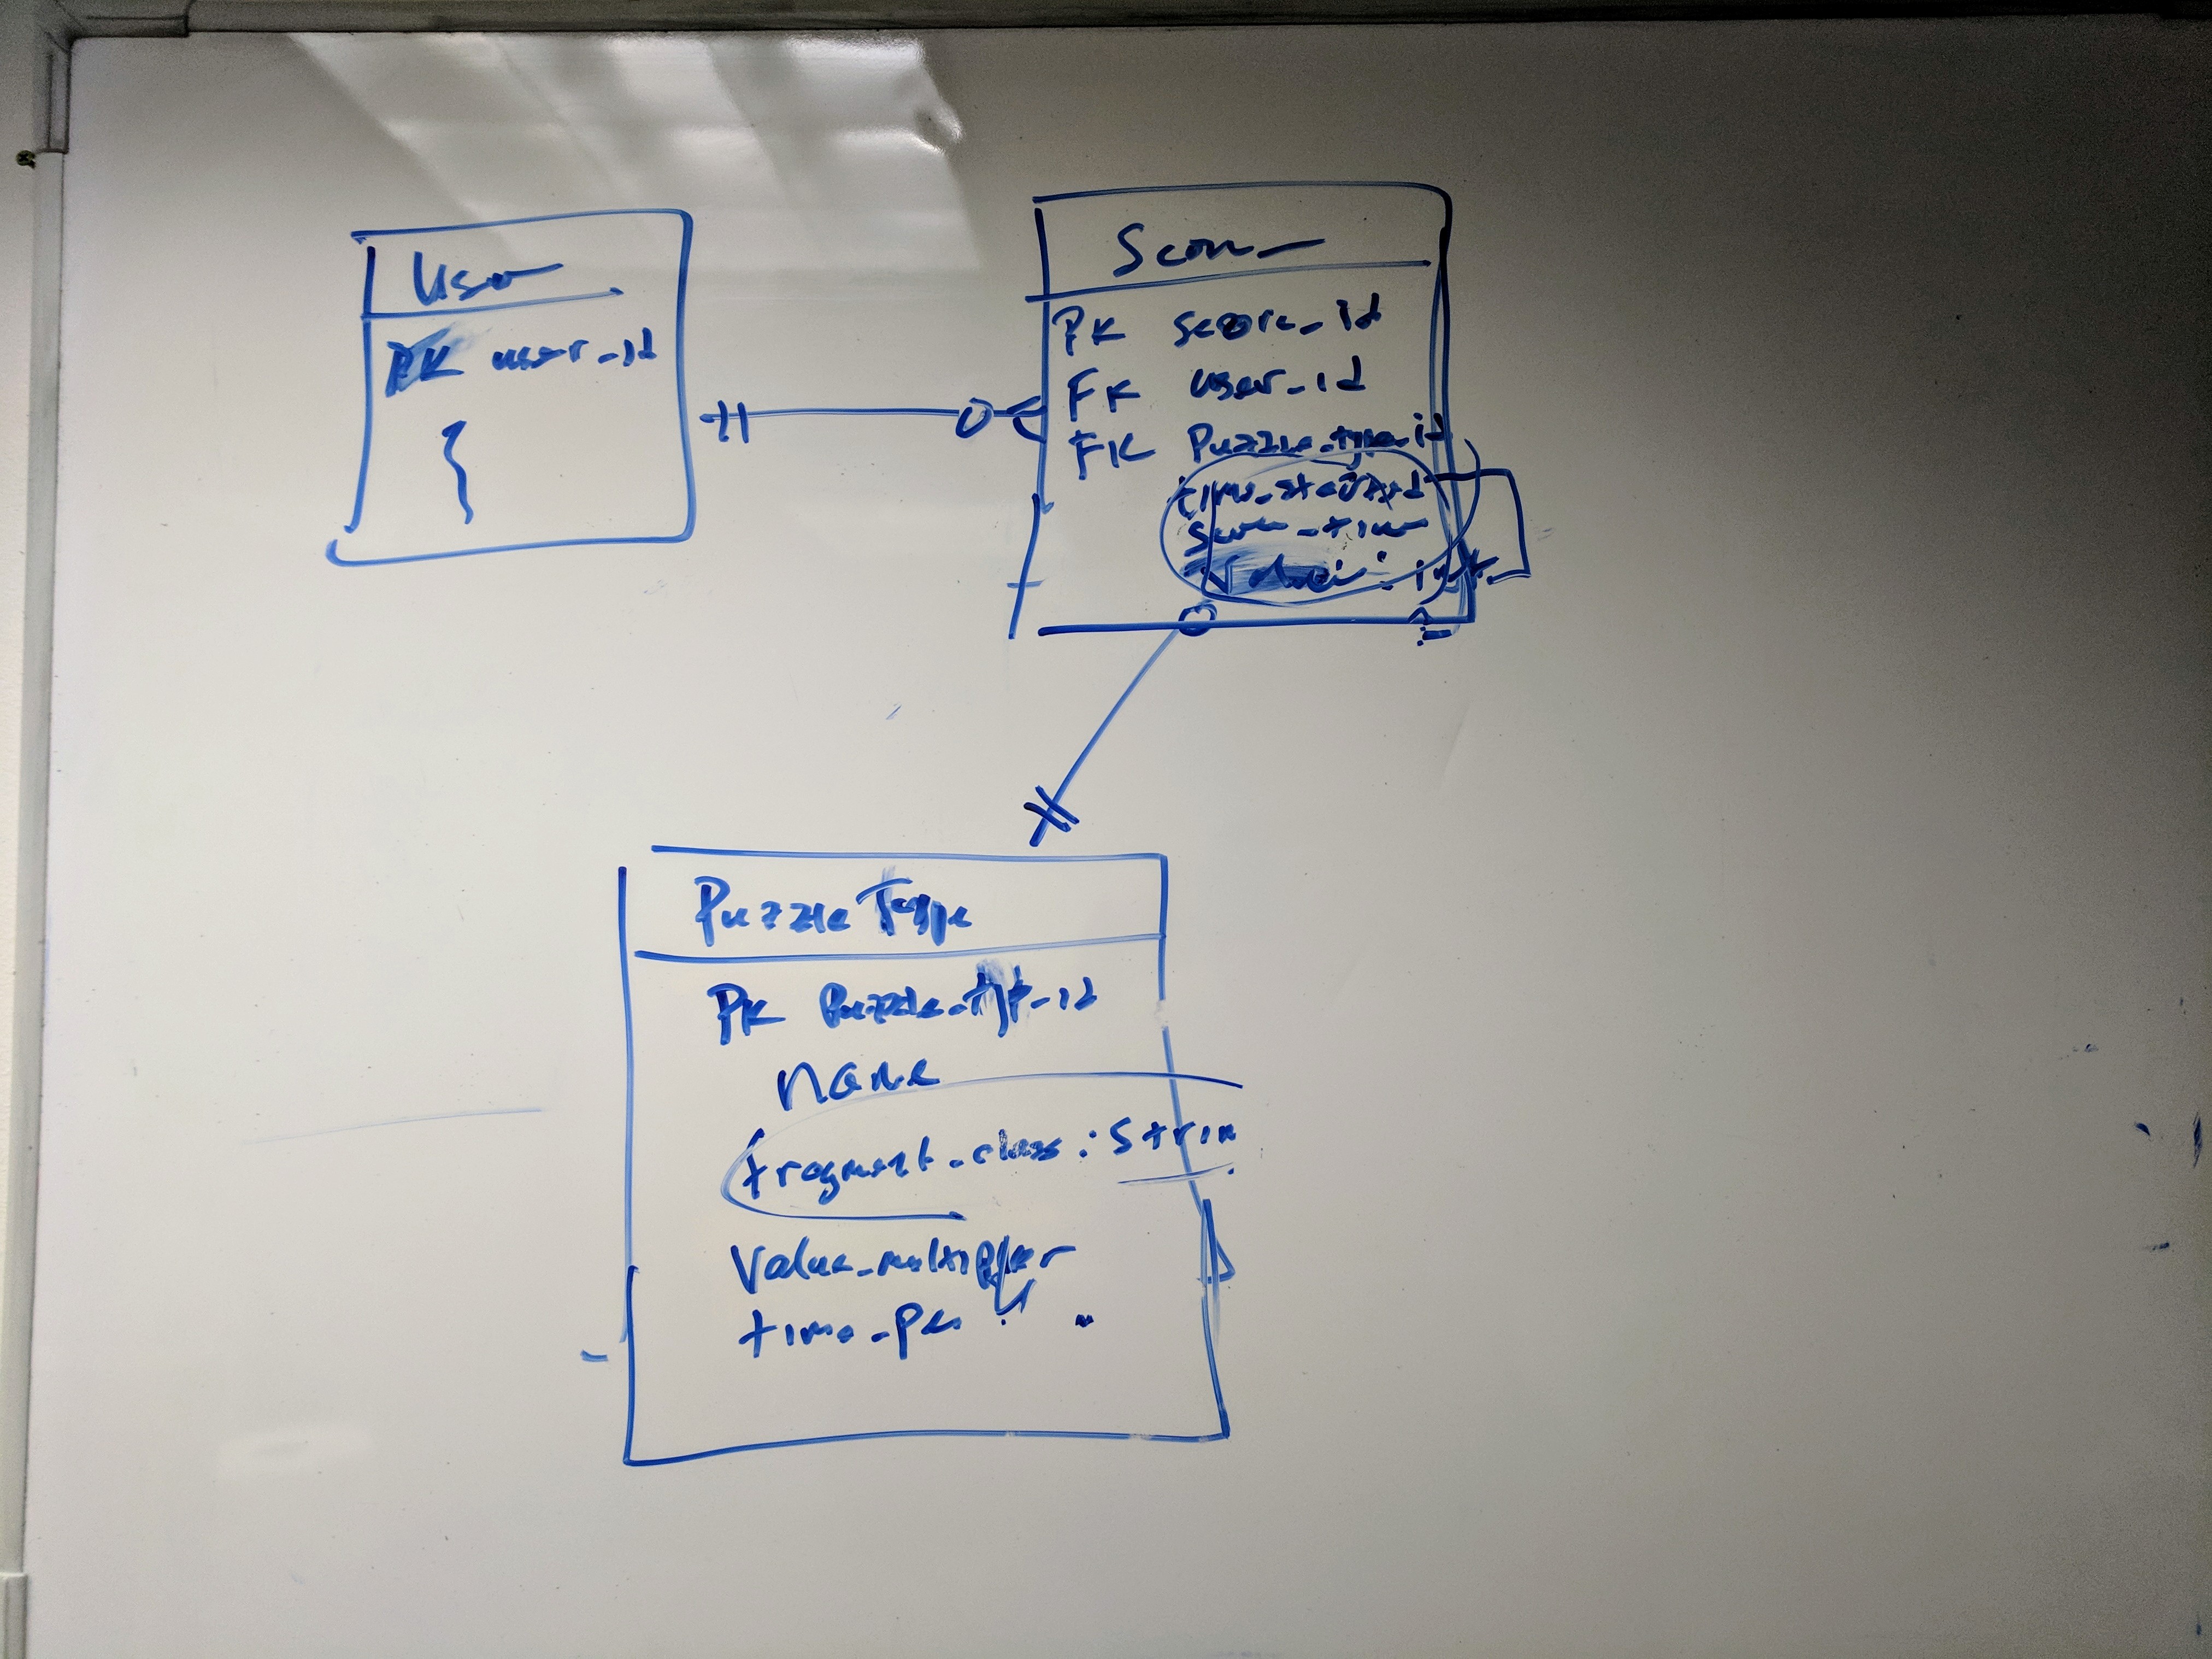 User
PK user_id
Score
PK score_id
FK user_id
FK Puzzle_type_id
time_started
score_time
Value: int
Puzzle Type
PK Puzzle_typ_id
name
fragment_class: Strin
Value_multiplier
time_